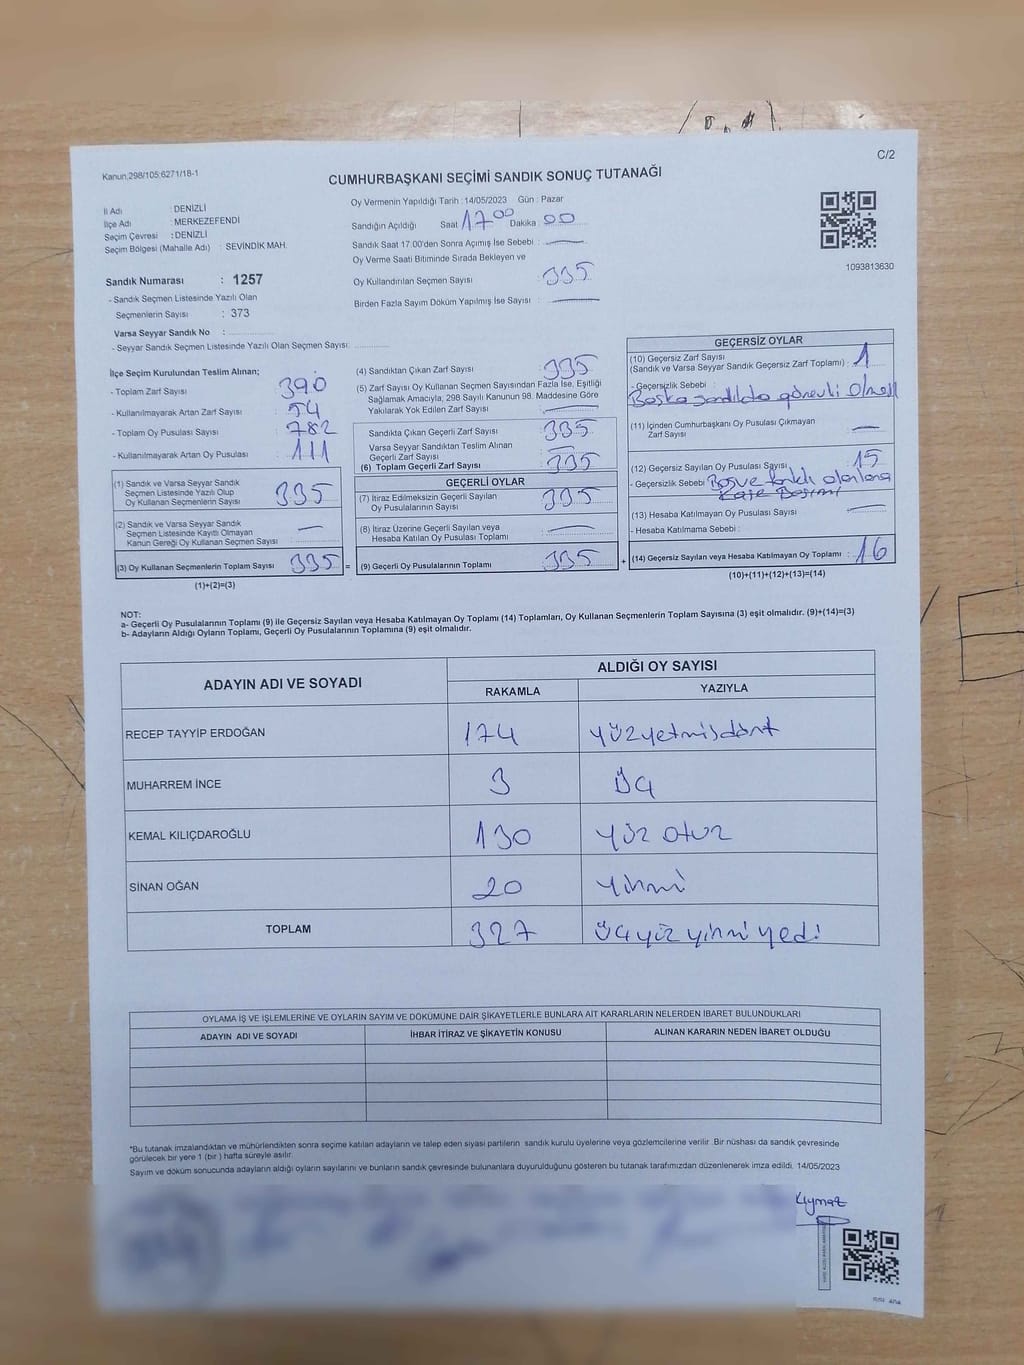 C/2
Kanun:298/105;6271/18-1
CUMHURBAŞKANI SEÇİMİ SANDIK SONUÇ TUTANAĞI
İl Adı : DENİZLİ
İlçe Adı : MERKEZEFENDİ
Seçim Çevresi : DENİZLİ
Seçim Bölgesi (Mahalle Adı) : SEVİNDİK MAH.
Sandık Numarası : 1257
- Sandık Seçmen Listesinde Yazılı Olan
Seçmenlerin Sayısı : 373
Varsa Seyyar Sandık No :
- Seyyar Sandık Seçmen Listesinde Yazılı Olan Seçmen Sayısı:
Oy Vermenin Yapıldığı Tarih : 14/05/2023 Gün : Pazar
Sandığın Açıldığı Saat 17 00 Dakika : 00
Sandık Saat 17.00'den Sonra Açımış İse Sebebi :
Oy Verme Saati Bitiminde Sırada Bekleyen ve
Oy Kullandırılan Seçmen Sayısı : 335
Birden Fazla Sayım Döküm Yapılmış İse Sayısı :
1093813630
İlçe Seçim Kurulundan Teslim Alınan;
- Toplam Zarf Sayısı : 390
- Kullanılmayarak Artan Zarf Sayısı : 54
- Toplam Oy Pusulası Sayısı : 782
- Kullanılmayarak Artan Oy Pusulası : 111
(1) Sandık ve Varsa Seyyar Sandık
Seçmen Listesinde Yazılı Olup
Oy Kullanan Seçmenlerin Sayısı : 335
(2) Sandık ve Varsa Seyyar Sandık
Seçmen Listesinde Kayıtlı Olmayan
Kanun Gereği Oy Kullanan Seçmen Sayısı :
(3) Oy Kullanan Seçmenlerin Toplam Sayısı : 335 =
(1)+(2)=(3)
(4) Sandıktan Çıkan Zarf Sayısı : 335
(5) Zarf Sayısı Oy Kullanan Seçmen Sayısından Fazla İse, Eşitliği
Sağlamak Amacıyla, 298 Sayılı Kanunun 98. Maddesine Göre
Yakılarak Yok Edilen Zarf Sayısı :
Sandıkta Çıkan Geçerli Zarf Sayısı : 335
Varsa Seyyar Sandıktan Teslim Alınan
Geçerli Zarf Sayısı :
(6) Toplam Geçerli Zarf Sayısı : 335
GEÇERLİ OYLAR
(7) İtiraz Edilmeksizin Geçerli Sayılan
Oy Pusulalarının Sayısı : 335
(8) İtiraz Üzerine Geçerli Sayılan veya
Hesaba Katılan Oy Pusulası Toplamı :
(9) Geçerli Oy Pusulalarının Toplamı : 335 +
GEÇERSİZ OYLAR
(10) Geçersiz Zarf Sayısı
(Sandık ve Varsa Seyyar Sandık Geçersiz Zarf Toplamı) : 1
- Geçersizlik Sebebi :
Başka sandıkta görevli olması
(11) İçinden Cumhurbaşkanı Oy Pusulası Çıkmayan
Zarf Sayısı :
(12) Geçersiz Sayılan Oy Pusulası Sayısı : 15
- Geçersizlik Sebebi : Boş ve farklı
(13) Hesaba Katılmayan Oy Pusulası Sayısı :
- Hesaba Katılmama Sebebi :
(14) Geçersiz Sayılan veya Hesaba Katılmayan Oy Toplamı : 16
(10)+(11)+(12)+(13)=(14)
NOT:
a- Geçerli Oy Pusulalarının Toplamı (9) ile Geçersiz Sayılan veya Hesaba Katılmayan Oy Toplamı (14) Toplamları, Oy Kullanan Seçmenlerin Toplam Sayısına (3) eşit olmalıdır. (9)+(14)=(3)
b- Adayların Aldığı Oyların Toplamı, Geçerli Oy Pusulalarının Toplamına (9) eşit olmalıdır.
ADAYIN ADI VE SOYADI ALDIĞI OY SAYISI
RAKAMLA YAZIYLA
RECEP TAYYİP ERDOĞAN 174 yüzyetmişdört
MUHARREM İNCE 3 üç
KEMAL KILIÇDAROĞLU 130 yüz otuz
SİNAN OĞAN 20 yirmi
TOPLAM 327 üçyüz yirmi yedi
OYLAMA İŞ VE İŞLEMLERİNE VE OYLARIN SAYIM VE DÖKÜMÜNE DAİR ŞİKAYETLERLE BUNLARA AİT KARARLARIN NELERDEN İBARET BULUNDUKLARI
ADAYIN ADI VE SOYADI İHBAR İTİRAZ VE ŞİKAYETİN KONUSU ALINAN KARARIN NEDEN İBARET OLDUĞU
*Bu tutanak imzalandıktan ve mühürlendikten sonra seçime katılan adayların ve talep eden siyasi partilerin sandık kurulu üyelerine veya gözlemcilerine verilir. Bir nüshası da sandık çevresinde
görülecek bir yere 1 (bir ) hafta süreyle asılır.
Sayım ve döküm sonucunda adayların aldığı oyların sayılarını ve bunların sandık çevresinde bulunanlara duyurulduğunu gösteren bu tutanak tarafımızdan düzenlenerek imza edildi. 14/05/2023
Kıymaz